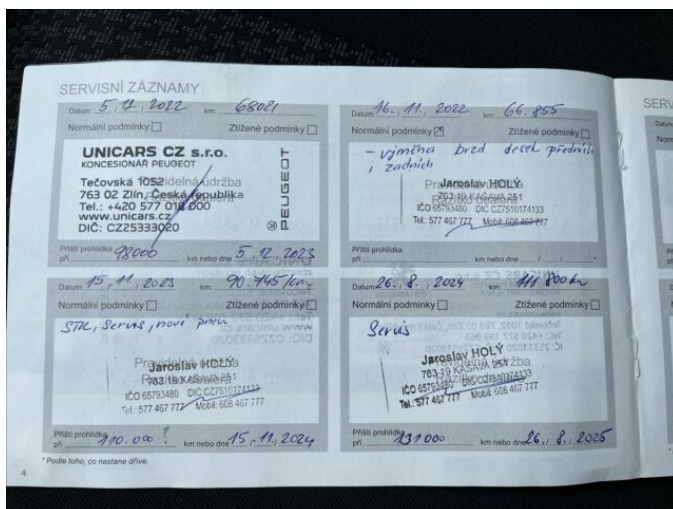 SERVISNÍ ZÁZNAMY
Datum: 5, 12, 2022 km: 68021
Normální podmínky Ztížené podmínky
UNICARS CZ s.r.o.
KONCESIONÁŘ PEUGEOT
Tečovská 1052
763 02 Zlín, Česká republika
Tel.: +420 577 018 000
www.unicars.cz
DIČ: CZ25333020
PEUGEOT
Pravidelná údržba
Příští prohlídka
při 98000 km nebo dne 5, 12, 2023
Datum: 16., 11, 2022 km: 66.855
Normální podmínky Ztížené podmínky
- výměna brzd desek předních
i zadních
Jaroslav HOLÝ
763 19 KAŠAVA 251
IČO 65793480 DIČ CZ7516174133
Tel.: 577 467 777 Mobil: 608 467 777
Příští prohlídka
při km nebo dne / /
Datum: 15, 11, 2023 km: 90.745/km
Normální podmínky Ztížené podmínky
STK, Servis, nové
Pravidelná údržba
Jaroslav HOLÝ
763 19 KAŠAVA 251
IČO 65793480 DIČ CZ7516174133
Tel.: 577 467 777 Mobil: 608 467 777
Příští prohlídka
při 110.000 ? km nebo dne 15, 11, 2024
Datum: 26, 8, 2024 km: 111 800 km
Normální podmínky Ztížené podmínky
Servis
Pravidelná údržba
Jaroslav HOLÝ
763 19 KAŠAVA 251
IČO 65793480 DIČ CZ7516174133
Tel.: 577 467 777 Mobil: 608 467 777
Příští prohlídka
při 131000 km nebo dne 26, 8, 2025
* Podle toho, co nastane dříve.
4